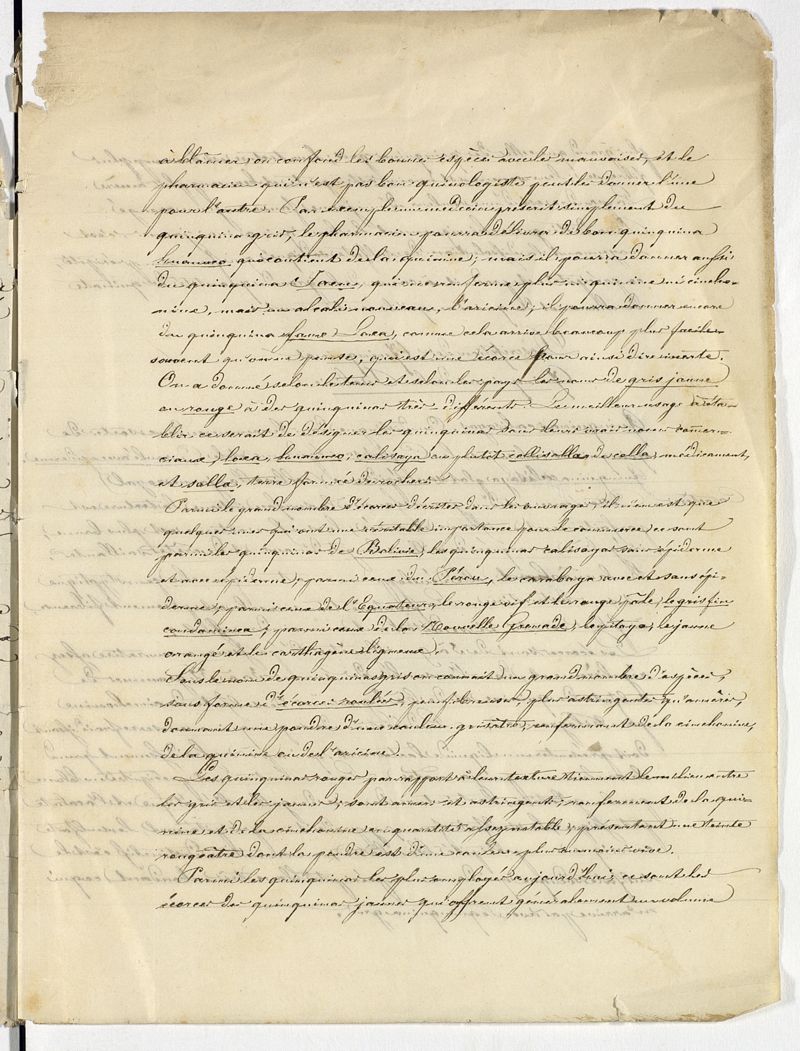 à blâmer, on confond les bonnes espèces avec les mauvaises, et le
pharmacien qui n'est pas bon quinologiste peut les donner l'une
pour l'autre. Par exemple un médecin prescrit simplement du
quinquina gris, le pharmacien pourra délivrer de bon quinquina
huanuco qui contient de la quinine; mais il pourra donner aussi
du quinquina Jaen, qui ne renferme plus ni quinine ni cincho-
nine, mais un alcali nouveau, l'aricine; il pourra donner encore
du quinquina faux Loxa, comme cela arrive beaucoup plus
souvent qu'on ne pense, qui est une écorce pour ainsi dire inerte.
On a donné selon les temps et selon les pays les noms de gris jaune
ou rouge à des quinquinas très différents. Le meilleur usage à éta-
blir ce serait de désigner les quinquinas dans leurs vrais noms comer-
ciaux, loxa, huanuco, calisaya ou plutôt collisalla, de colla, médicament,
et salla, terre formée de rochers.
Parmi le grand nombre d'écorces décrites dans les ouvrages, il n'en est que
quelques unes qui ont une véritable importance pour le commerce; ce sont
parmi les quinquinas de Bolivie, les quinquinas calisayas sans épiderme
et avec épiderme; parmi ceux du Pérou, le carabaya avec et sans épi-
derme; parmi ceux de l'Equateur, le rouge vif et le rouge pâle, le gris fin
condaminea; parmi ceux de la Nouvelle Grenade, le pitayo, le jaune
orangé et le carthagène ligneux.
Sous le nom de quinquinas gris on connait un grand nombre d'espèces,
sous forme d'écorces roulées, peu fibreuses, plus astringentes qu'amères,
donnant une poudre d'une couleur grisâtre, renfermant de la cinchonine,
de la quinine ou de l'aricine.
Les quinquinas rouges par rapport à leur texture tiennent le milieu entre
les gris et les jaunes; sont amers et astringents, renferment de la qui-
nine et de la cinchonine en quantité assez notable, présentant une teinte
rougeâtre dont la poudre est d'une couleur plus ou moins vive.
Parmi les quinquinas les plus employés aujourd'hui, ce sont les
écorces des quinquinas jaunes qui offrent généralement un volume